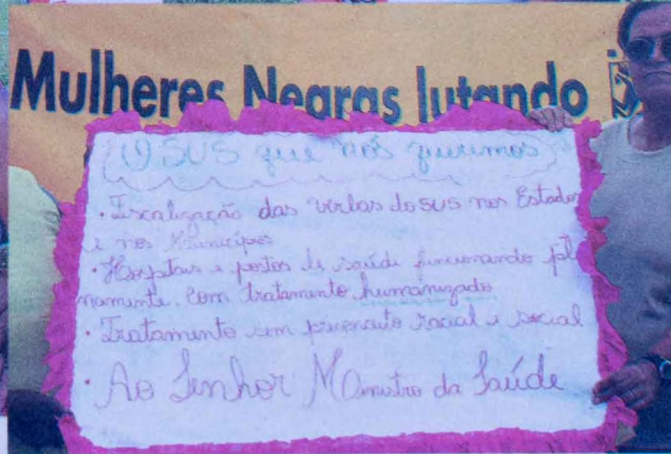 Mulheres Negras lutando
O SUS que nós queremos
• Fiscalização das verbas do SUS nos Estados
e nos Municípios
• Hospitais e postos de saúde funcionando ple
namente, com tratamento humanizado
• Tratamento sem preconceito racial e social
• Ao Senhor Ministro da Saúde